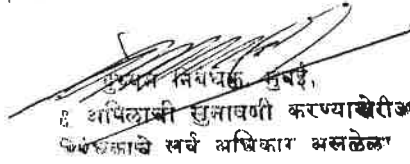 मुख्य निबंधक, मुंबई,
अपिलाची सुनावणी करण्याखेरीज
निबंधकाचे सर्व अधिकार असलेला